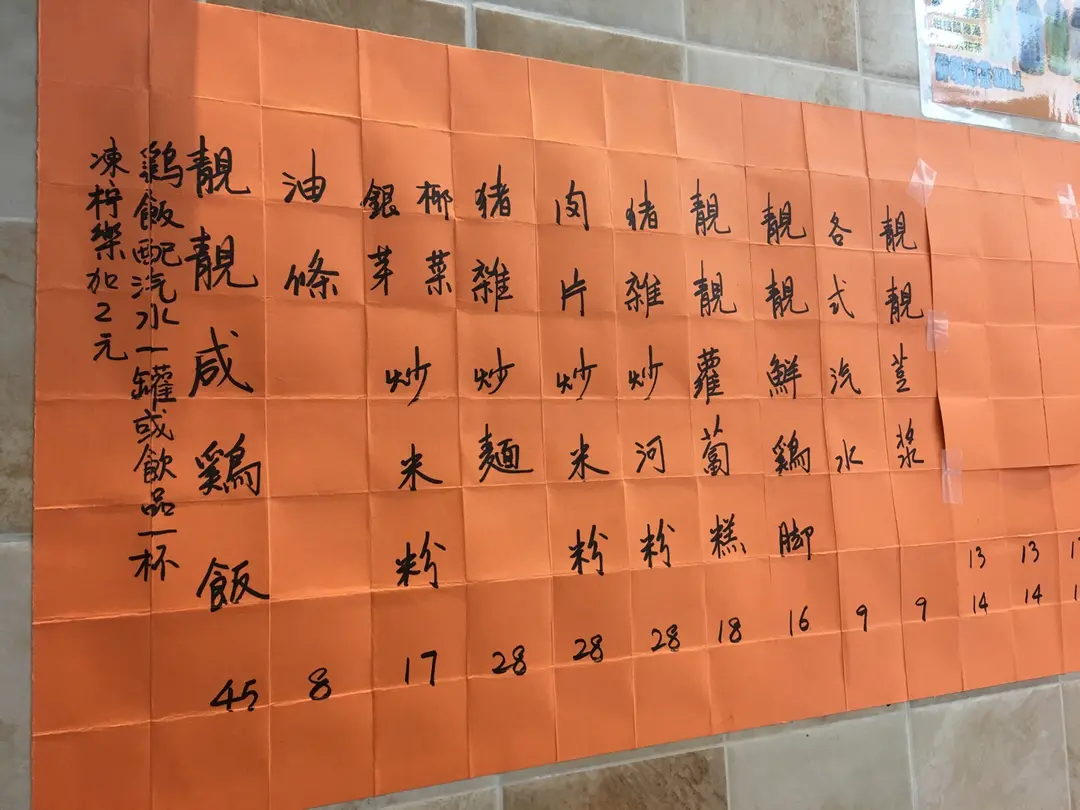 13 14
13 14
靚靚荳漿 9
各式汽水 9
靚靚鮮鷄脚 16
靚靚蘿蔔糕 18
猪雜炒河粉 28
肉片炒米粉 28
猪雜炒麵 28
椰菜
銀芽
炒米粉 17
油條 8
靚靚咸鷄飯 45
鷄飯配汽水一罐或飲品一杯
凍柠樂加2元